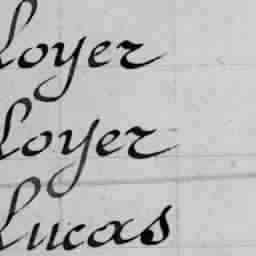 Loyer
Loyer
Lucas